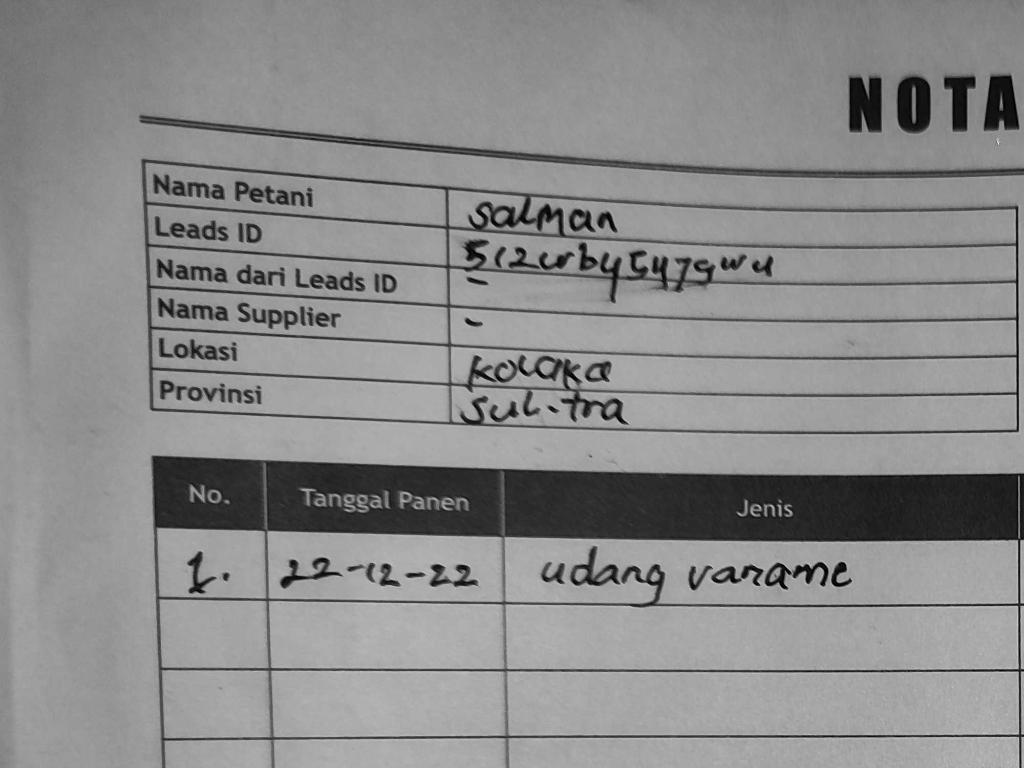 NOTA
Nama Petani salman
Leads ID
Nama dari Leads ID -
Nama Supplier -
Lokasi kolaka
Provinsi sul-tra
No. Tanggal Panen Jenis
1. 22-12-22 udang vaname